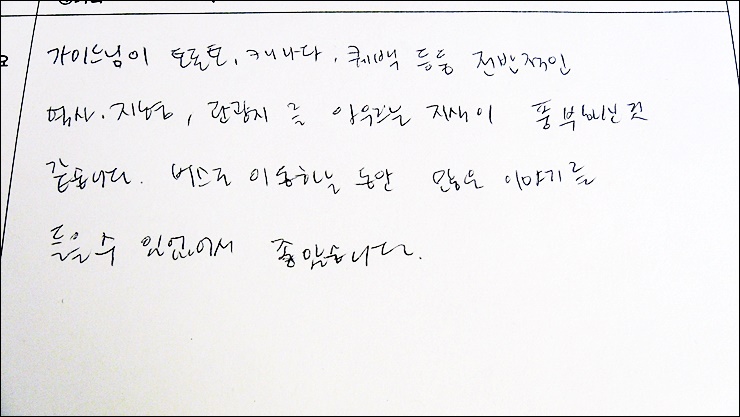 요
가이드님이 토론토, 캐나다, 퀘백 등등 전반적인
역사, 지명, 관광지를 아우르는 지식이 풍부하신 것
같습니다. 버스로 이동하는 동안 많은 이야기를
들을 수 있었어서 좋았습니다.